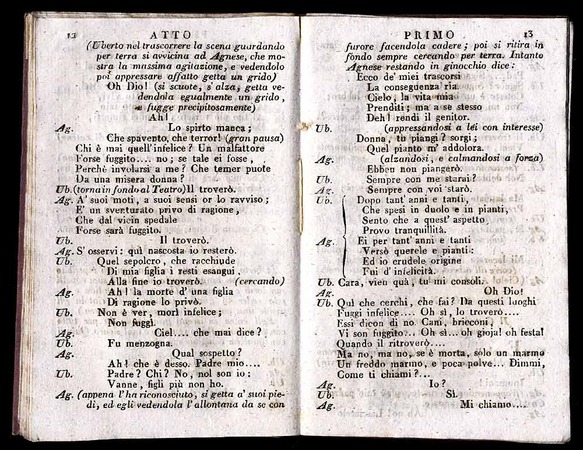 12 ATTO
(Uberto nel trascorrere la scena guardando
per terra si avvicina ad Agnese, che mo-
stra la massima agitazione, e vedendolo
poi appressare affatto getta un grido)
Oh Dio! (si scuote, s'alza; getta ve-
dendola egualmente un grido,
e fugge precipitosamente)
Ah!
Ag. Lo spirto manca;
Che spavento, che terror! (gran pausa)
Chi è mai quell'infelice? Un malfattore
Forse fuggito.... no; se tale ei fosse,
Perchè involarsi a me? Che temer puote
Da una misera donna?
Ub. (torna in fondo al Teatro) Il troverò.
Ag. A' suoi moti, a suoi sensi or lo ravviso;
E' un sventurato privo di ragione,
Che dal vicin spedale
Forse sarà fuggito.
Ub. Il troverò.
Ag. S'osservi: quì nascosta io resterò.
Ub. Quel sepolcro, che racchiude
Di mia figlia i resti esangui,
Alla fine io troverò. (cercando)
Ag. Ah! la morte d' una figlia
Di ragione lo privò.
Ub. Non è ver, morì infelice;
Non fuggì.
Ag. Ciel.... che mai dice?
Ub. Fu menzogna.
Ag. Qual sospetto?
Ah! che è desso. Padre mio....
Ub. Padre? Chi? No, nol son io:
Vanne, figli più non ho.
Ag. (appena l'ha riconosciuto, si getta a' suoi pie-
di, ed egli vedendola l'allontana da se con
PRIMO 13
furore facendola cadere; poi si ritira in
fondo sempre cercando per terra. Intanto
Agnese restando in ginocchio dice:
Ecco de' miei trascorsi
La conseguenza ria.
Cielo, la vita mia
Prenditi; ma a se stesso
Deh! rendi il genitor.
Ub. (appressandosi a lei con interesse)
Donna, tu piangi? sorgi;
Quel pianto m' addolora.
Ag. (alzandosi, e calmandosi a forza)
Ebben non piangerò.
Ub. Sempre con me starai?
Ag. Sempre con voi starò.
Ub. Dopo tant' anni e tanti,
Che spesi in duolo e in pianti,
Sento che a quest' aspetto
Provo tranquillità.
Ag. Ei per tant' anni e tanti
Versò querele e pianti:
Ed io crudele origine
Fui d' infelicità.
Ub. Cara, vien quà, tu mi consoli.
Ag. Oh Dio!
Ub. Quì che cerchi, che fai? Da questi luoghi
Fuggi infelice.... Oh sì, lo troverò....
Essi dicon di no. Cani, bricconi,
Vi son fuggito... Oh sì... oh gioja! oh festa!
Quando il ritroverò....
Ma no, ma no, se è morta, solo un marmo
Un freddo marmo, e poca polve... Dimmi,
Come ti chiami?...
Ag. Io?
Ub. Sì.
Ag. Mi chiamo....